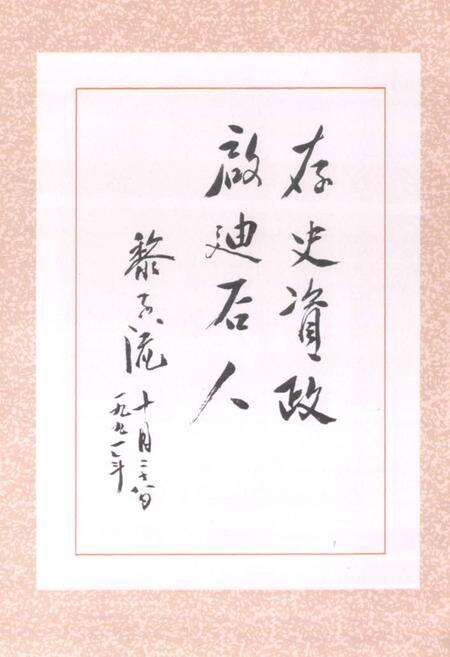 存史資政
啟迪后人
黎子流
一九九一年
十月二十八日